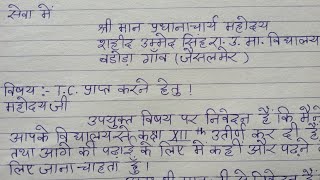 सेवा में
श्री मान प्रधानाचार्य महोदय
शहीद उम्मेद सिंह रा. उ. मा. विद्यालय
बडोडा गाँव (जैसलमेर)
विषय :- T.C. प्राप्त करने हेतु !
महोदय जी
उपयुक्त विषय पर निवेदन है कि मैंने
आपके विद्यालय से कक्षा XII th उतीर्ण कर दी है
तथा आगे की पढ़ाई के लिए मे कही और पढ़ने
लिए जाना चाहता हूँ